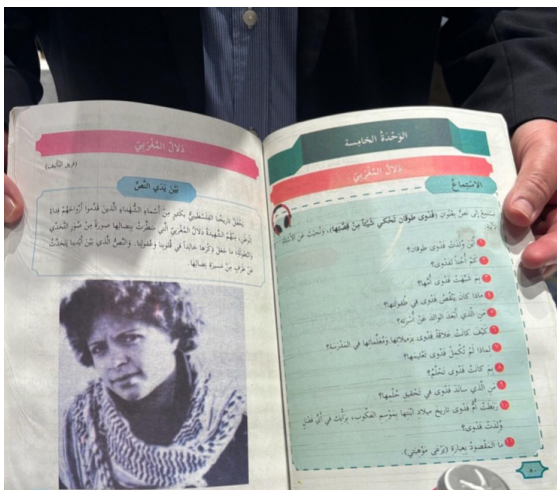 الوَحْدَةُ الخامِسة
دَلالُ المُغْرَبِيّ
الاسْتِماعُ
نَسْتَمِعُ إلى نَصٍّ بِعُنوانِ (فَدْوى طوقان تَحْكي شَيْئاً مِنْ قِصَّتِها)، وَنُجيبُ عَنِ الأَسْئِلَةِ
الآتِيَةِ:
١ أَيْنَ وُلِدَتْ فَدْوى طوقان؟
٢ كَمْ أَخاً لِفَدْوى؟
٣ بِمَ شَبَّهَتْ فَدْوى أُمَّها؟
٤ ماذا كانَ يَنْقُصُ فَدْوى في طُفولَتِها؟
٥ مَنِ الَّذي أَبْعَدَ الوالِدَ عَنْ أُسْرَتِهِ؟
٦ كَيْفَ كانَتْ عَلاقَةُ فَدْوى بِزَميلاتِها وَمُعَلِّماتِها في المَدْرَسَةِ؟
٧ لِماذا لَمْ تُكْمِلْ فَدْوى تَعْليمَها؟
٨ بِمَ كانَتْ فَدْوى تَحْلُمُ؟
٩ مَنِ الَّذي سانَدَ فَدْوى في تَحْقيقِ حُلْمِها؟
١٠ رَبَطَتْ أُمُّ فَدْوى تاريخَ ميلادِ ابْنَتِها بِمَوْسِمِ العَكّوب، بِرَأْيِكَ في أَيِّ فَصْلٍ
وُلِدَتْ فَدْوى؟
١١ ما المَقْصودُ بِعِبارَةِ (يَرْعى مَوْهِبَتي)
٥٠
دَلالُ المُغْرَبِيّ
(فريق التأليف)
بَيْنَ يَدَيِ النَّصِّ
يَحْفِلُ تاريخُنا الفِلَسْطينِيُّ بِكَثيرٍ مِنْ أَسْماءِ الشُّهَداءِ الَّذينَ قَدَّموا أَرْواحَهُمْ فِداءً
لِلوَطَنِ، مِنْهُمُ الشَّهيدَةُ دَلالُ المُغْرَبِيّ الَّتي سَطَّرَتْ بِنِضالِها صورَةً مِنْ صُوَرِ التَّحَدّي
وَالبُطولَةِ؛ ما جَعَلَ ذِكْراها خالِداً في قُلوبِنا وَعُقولِنا. وَالنَّصُّ الَّذي بَيْنَ أَيْدينا يَتَحَدَّثُ
عَنْ طَرَفٍ مِنْ مَسيرَةِ نِضالِها.